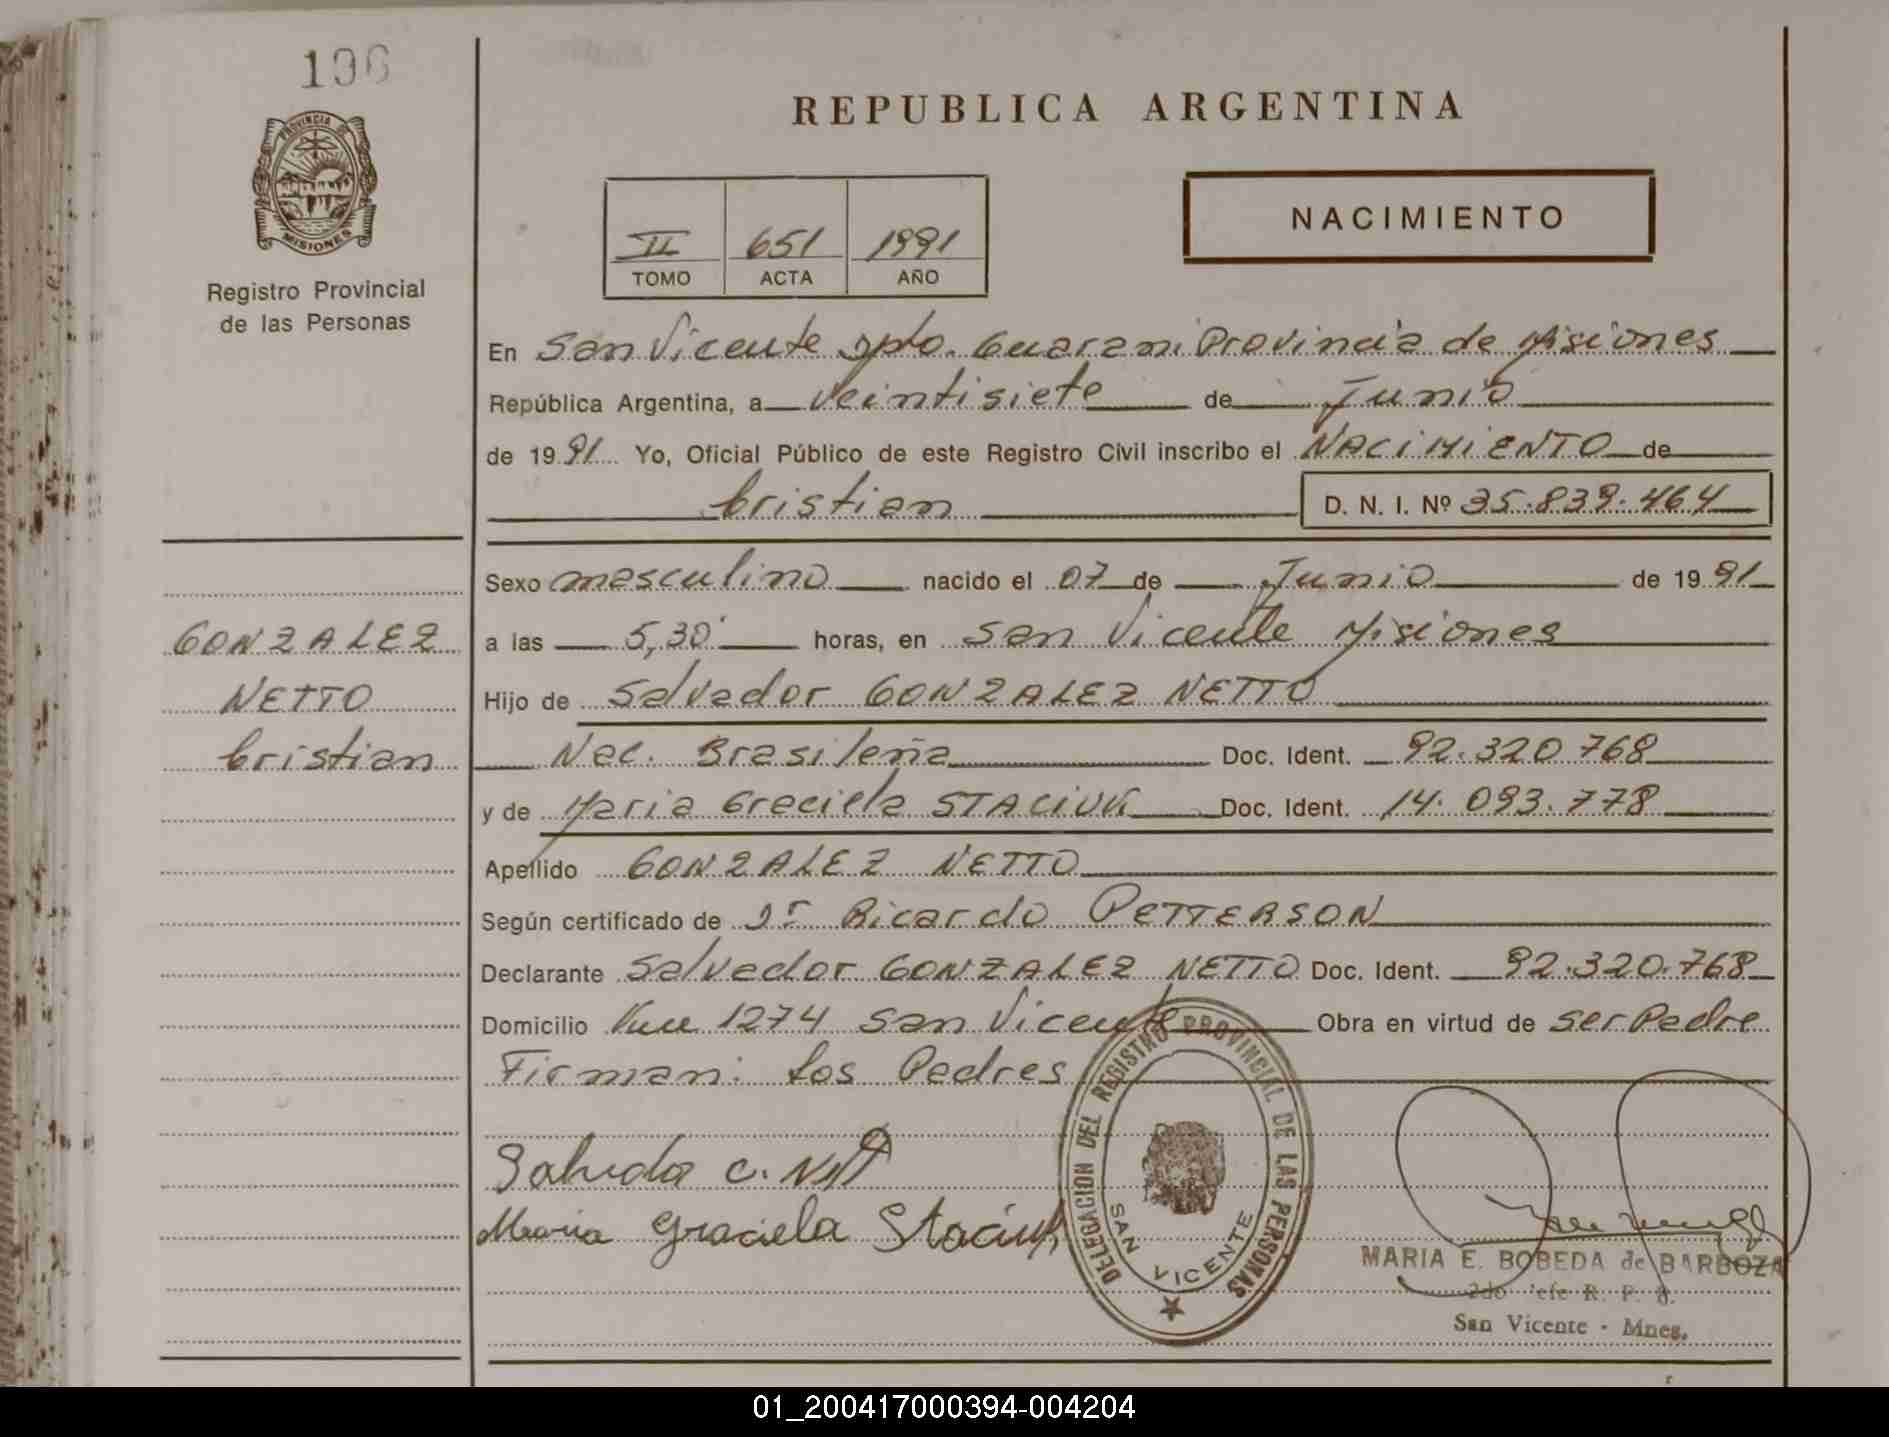 196
PROVINCIA DE
MISIONES
Registro Provincial
de las Personas
REPUBLICA ARGENTINA
II 651 1991
TOMO ACTA AÑO
NACIMIENTO
En San Vicente Dpto. Guarani Provincia de Misiones
República Argentina, a veintisiete de Junio
de 1991 Yo, Oficial Público de este Registro Civil inscribo el NACIMIENTO de
Cristian D. N. I. Nº 35.839.464
Sexo masculino nacido el 07 de Junio de 1991
GONZALEZ
NETTO
Cristian
a las 5,30' horas, en San Vicente Misiones
Hijo de Salvador GONZALEZ NETTO
Nac. Brasileña Doc. Ident. 92.320.768
y de Maria Graciela STACIUK Doc. Ident. 14.093.778
Apellido GONZALEZ NETTO
Según certificado de Dr Ricardo PETTERSON
Declarante Salvador GONZALEZ NETTO Doc. Ident. 92.320.768
Domicilio 1274 San Vicente Obra en virtud de ser Padre
Firman: Los Padres
Maria Graciela Staciuk
DELEGACION DEL REGISTRO PROVINCIAL DE LAS PERSONAS
SAN VICENTE
MARIA E. BOBEDA de BARBOZA
2do Jefe R. P.
San Vicente - Mnes.
01_200417000394-004204